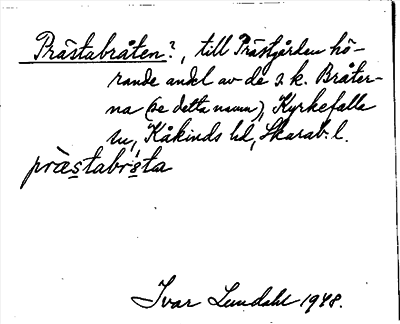 Prästabråten?, till Prästgården hö-
rande andel av de s.k. Bråter-
na (se detta namn), Kyrkefalla
sn, Kåkinds hd, Skarab. l.
præstabrɔta
Ivar Lundahl 1948.